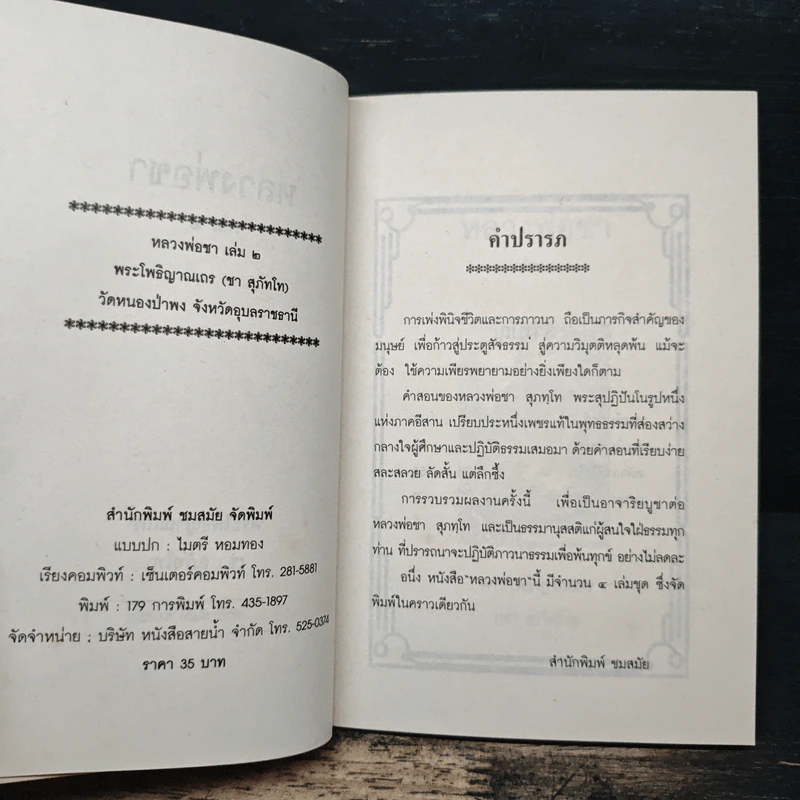 หลวงพ่อชา
************************
หลวงพ่อชา เล่ม ๒
พระโพธิญาณเถร (ชา สุภัทโท)
วัดหนองป่าพง จังหวัดอุบลราชธานี
************************
สำนักพิมพ์ ชมสมัย จัดพิมพ์
แบบปก : ไมตรี หอมทอง
เรียงคอมพิวท์ : เซ็นเตอร์คอมพิวท์ โทร. 281-5881
พิมพ์ : 179 การพิมพ์ โทร. 435-1897
จัดจำหน่าย : บริษัท หนังสือสายน้ำ จำกัด โทร. 525-0374
ราคา 35 บาท
คำปรารภ
***************
การเพ่งพินิจชีวิตและการภาวนา ถือเป็นภารกิจสำคัญของ
มนุษย์ เพื่อก้าวสู่ประตูสัจธรรม สู่ความวิมุตติหลุดพ้น แม้จะ
ต้อง ใช้ความเพียรพยายามอย่างยิ่งเพียงใดก็ตาม
คำสอนของหลวงพ่อชา สุภทฺโท พระสุปฏิปันโนรูปหนึ่ง
แห่งภาคอีสาน เปรียบประหนึ่งเพชรแท้ในพุทธธรรมที่ส่องสว่าง
กลางใจผู้ศึกษาและปฏิบัติธรรมเสมอมา ด้วยคำสอนที่เรียบง่าย
สละสลวย ลัดสั้น แต่ลึกซึ้ง
การรวบรวมผลงานครั้งนี้ เพื่อเป็นอาจาริยบูชาต่อ
หลวงพ่อชา สุภทฺโท และเป็นธรรมานุสสติแก่ผู้สนใจใฝ่ธรรมทุก
ท่าน ที่ปรารถนาจะปฏิบัติภาวนาธรรมเพื่อพ้นทุกข์ อย่างไม่ลดละ
อนึ่ง หนังสือ"หลวงพ่อชา"นี้ มีจำนวน ๔ เล่มชุด ซึ่งจัด
พิมพ์ในคราวเดียวกัน
สำนักพิมพ์ ชมสมัย